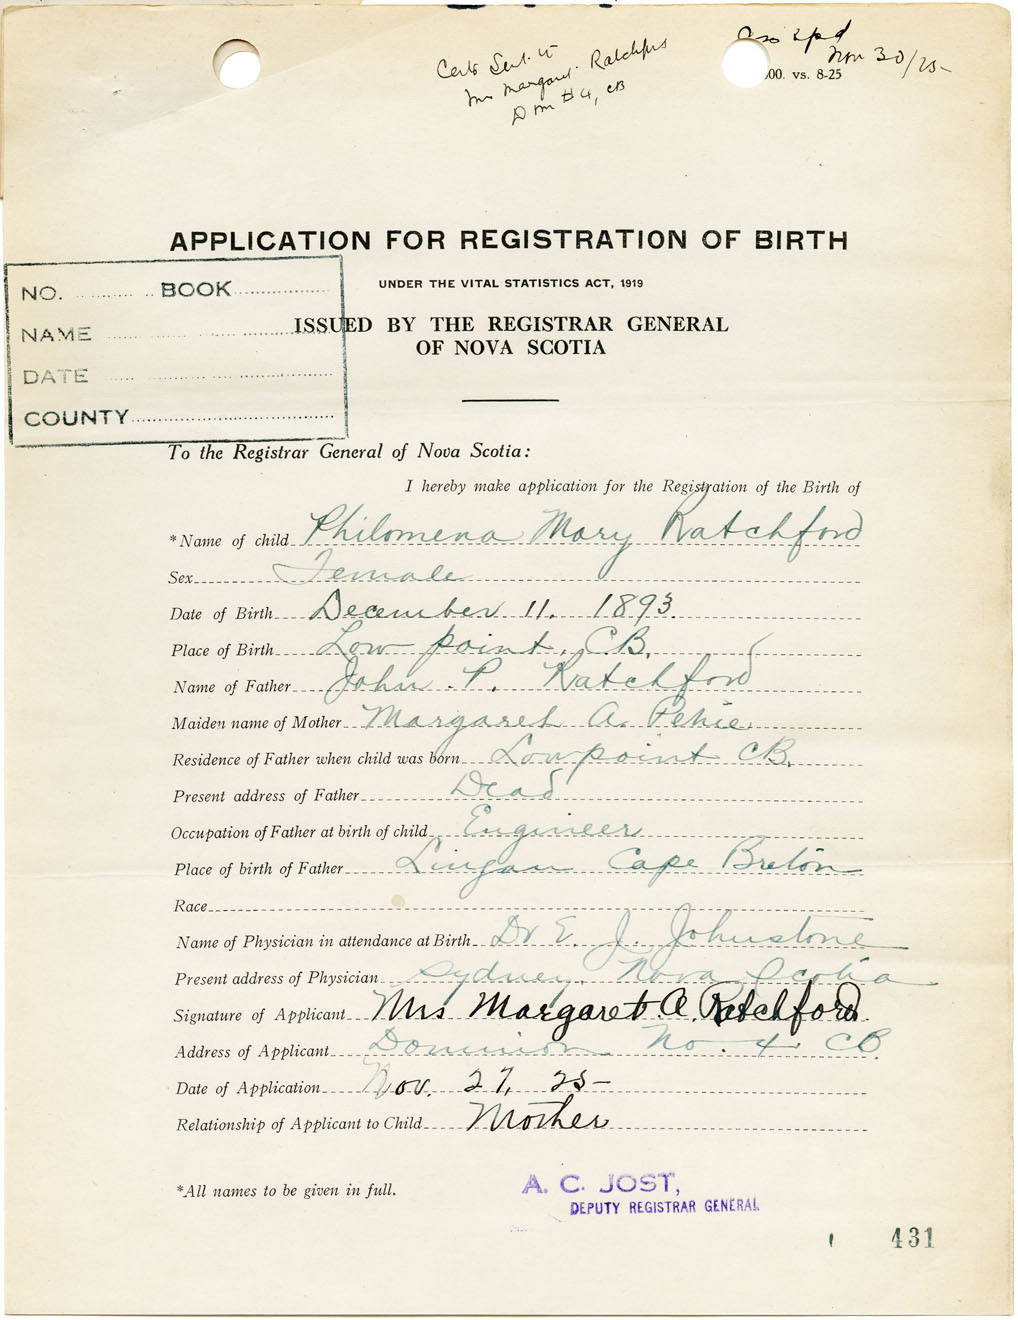 Cert Sent to
Mrs Margaret Ratchford
Dm #4, CB
2pd
Nov 30/25-
00. vs. 8-25
APPLICATION FOR REGISTRATION OF BIRTH
UNDER THE VITAL STATISTICS ACT, 1919
ISSUED BY THE REGISTRAR GENERAL
OF NOVA SCOTIA
NO. BOOK
NAME
DATE
COUNTY
To the Registrar General of Nova Scotia:
I hereby make application for the Registration of the Birth of
*Name of child Philomena Mary Ratchford
Sex Female
Date of Birth December 11. 1893.
Place of Birth Low point. CB.
Name of Father John P. Ratchford
Maiden name of Mother Margaret A.
Residence of Father when child was born Lowpoint CB.
Present address of Father Dead
Occupation of Father at birth of child Engineer
Place of birth of Father Lingan Cape Breton
Race
Name of Physician in attendance at Birth Dr E. J. Johnstone
Present address of Physician Sydney. Nova Scotia
Signature of Applicant Mrs Margaret. A. Ratchford.
Address of Applicant Dominion No. 4 CB.
Date of Application Nov. 27, 25-
Relationship of Applicant to Child Mother
*All names to be given in full.
A. C. JOST,
DEPUTY REGISTRAR GENERAL
431